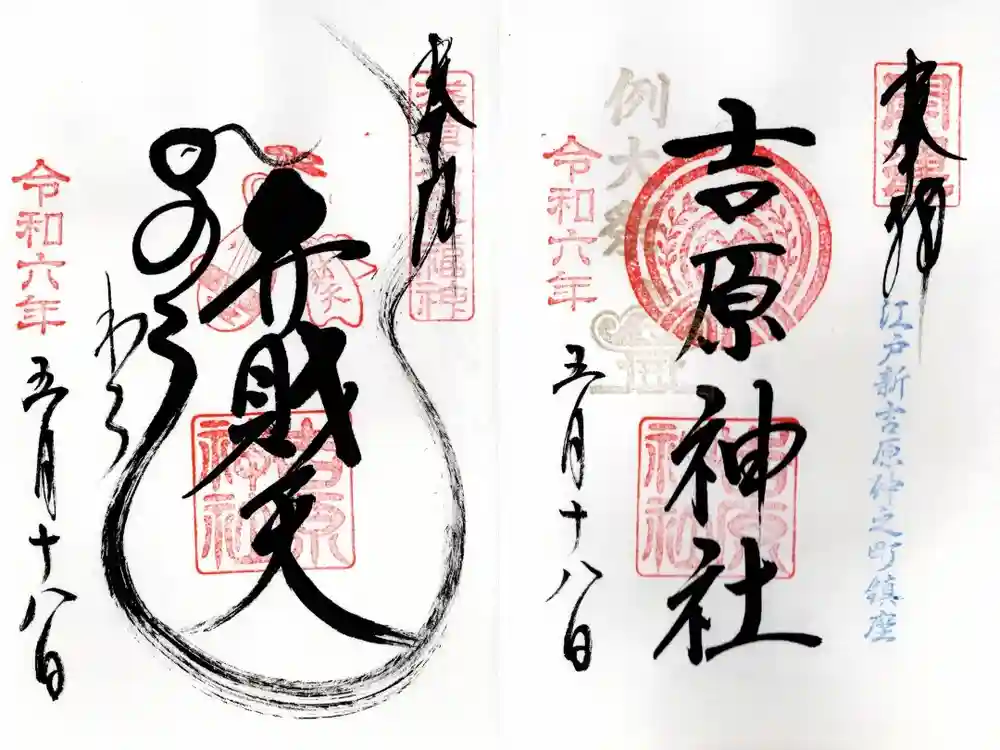 奉拝
開運
江戸新吉原仲之町鎮座
吉原神社
例大祭
吉原神社
令和六年
五月十八日
奉拝
浅草名所七福神
弁財天
吉原神社
令和六年
五月十八日